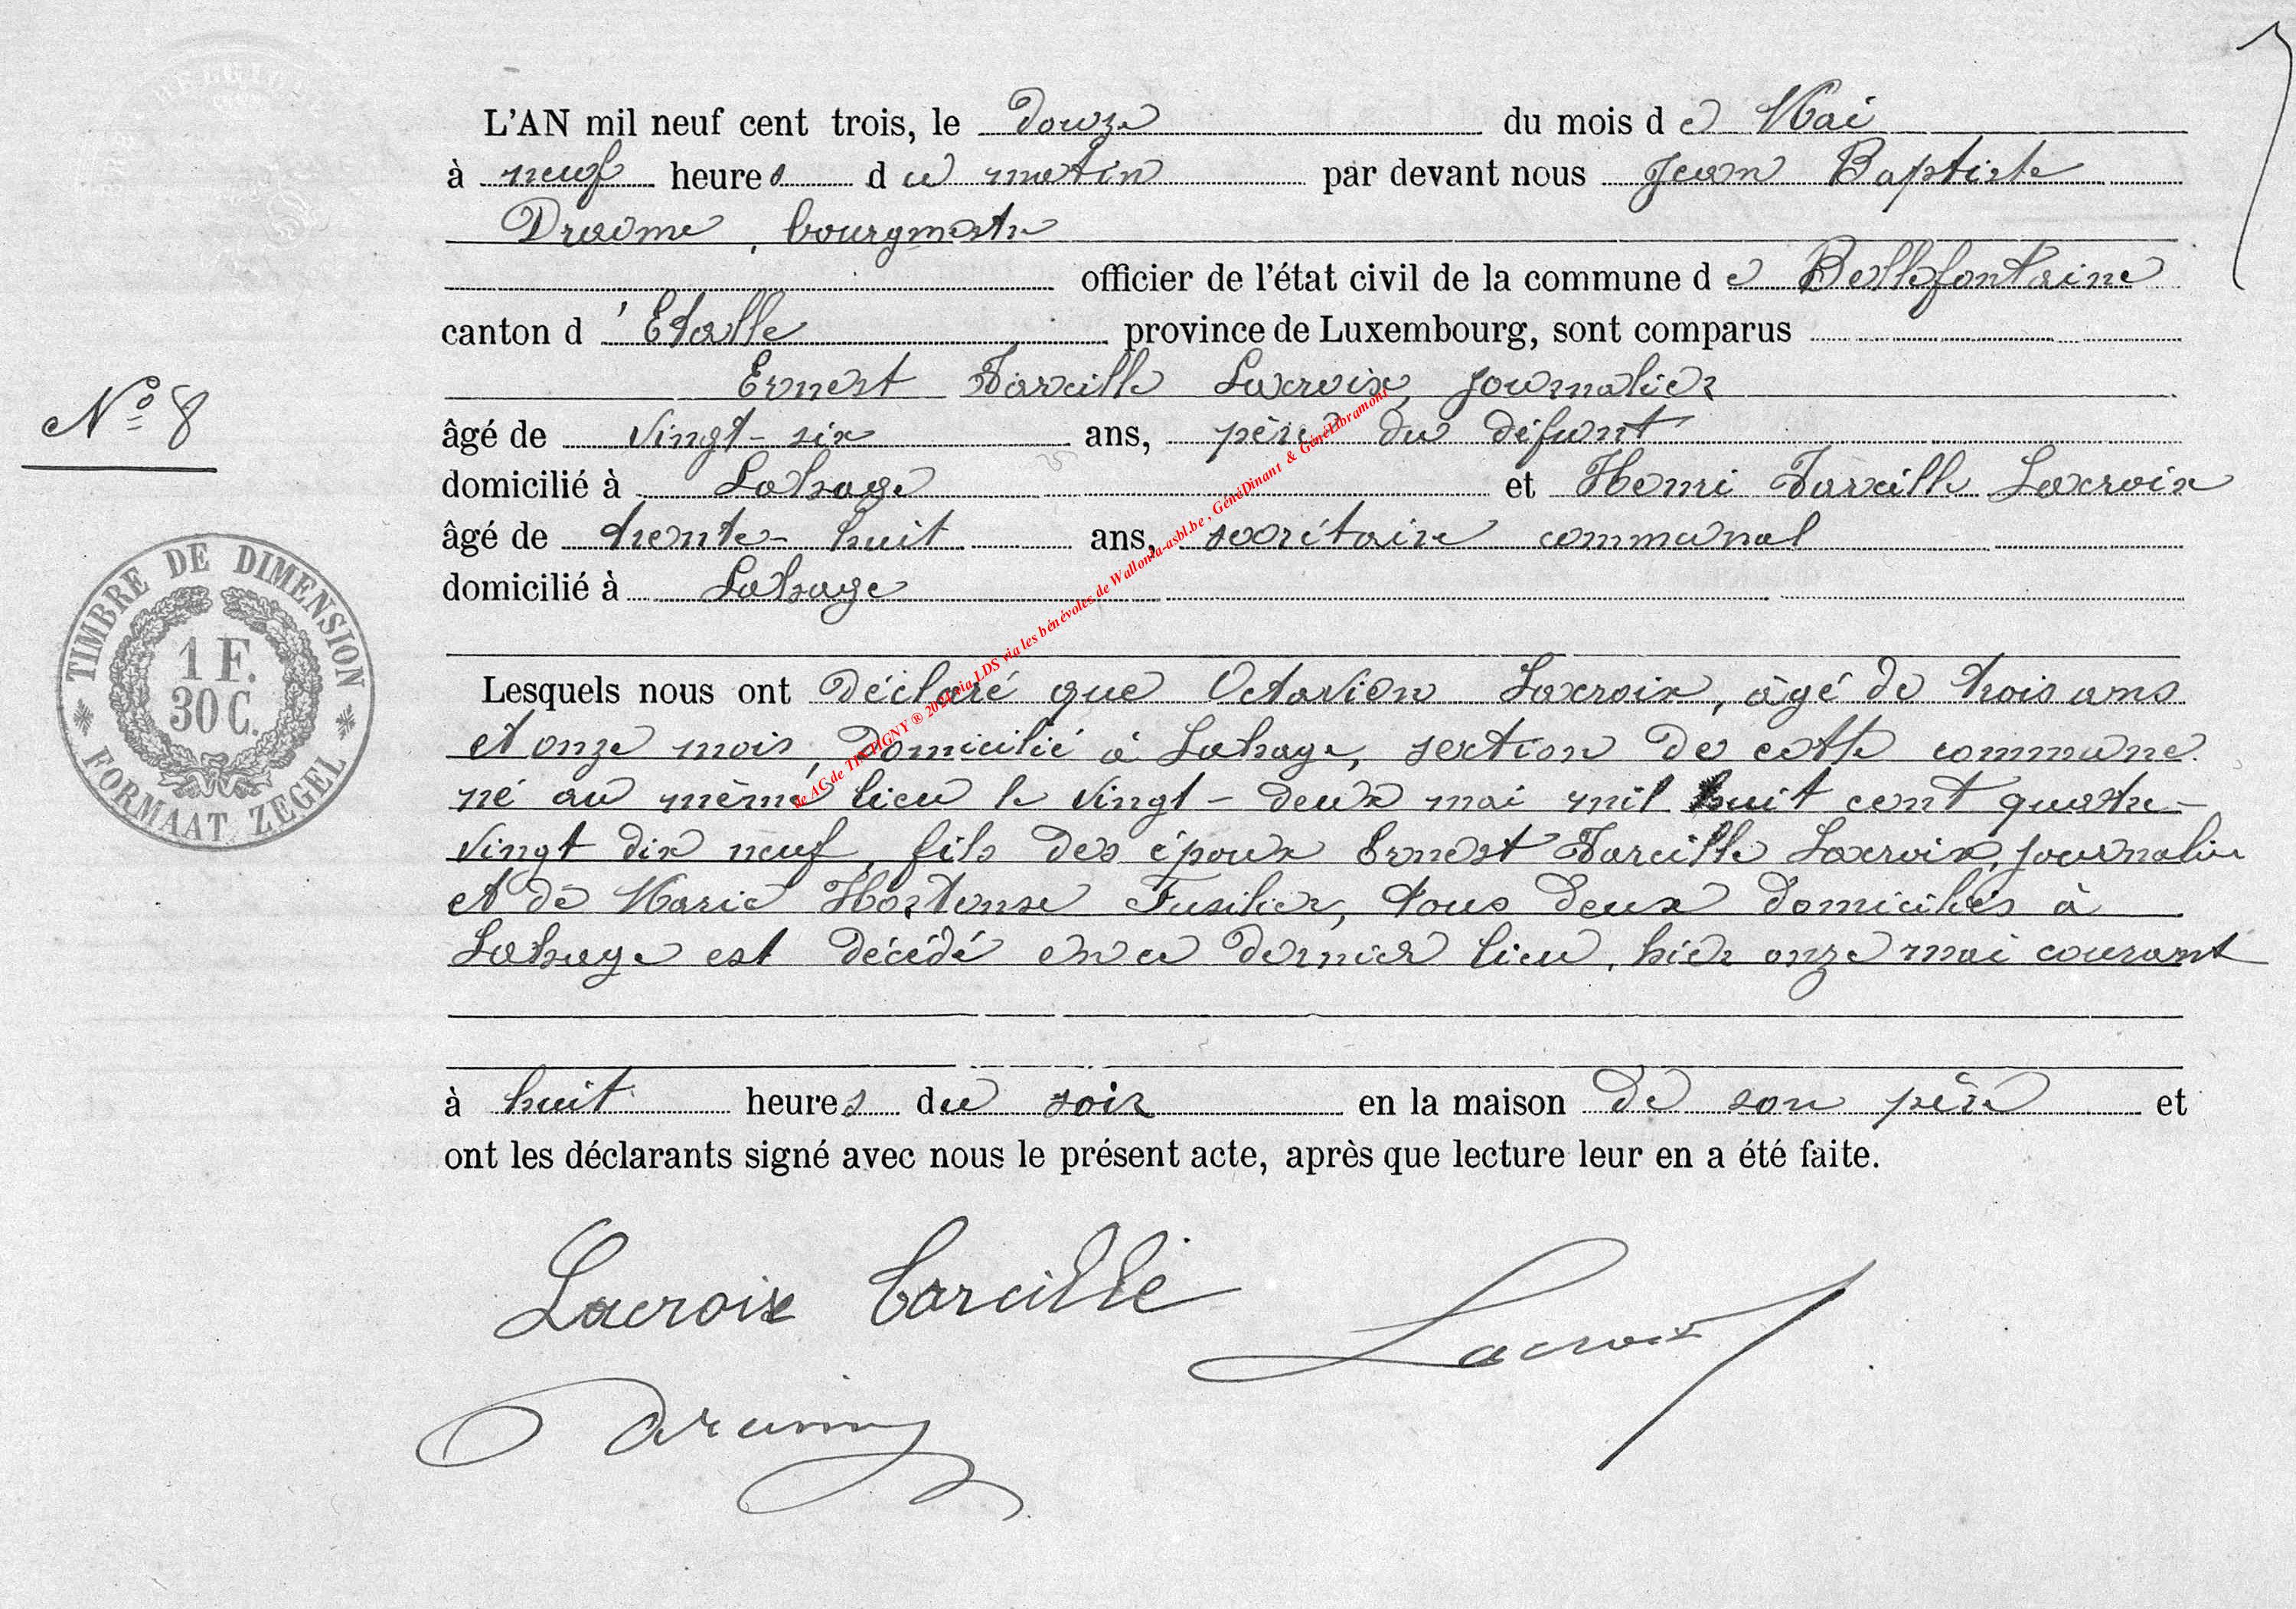 L'AN mil neuf cent trois, le douze du mois de Mai
à neuf heures du matin par devant nous Jean Baptiste
bourgmestre
officier de l'état civil de la commune de Bellefontaine
canton d'Etalle province de Luxembourg, sont comparus
Ernest Tareille Lacroix, journalier
N° 8
âgé de vingt-six ans, père du défunt
domicilié à Lahage et Henri Tareille Lacroix
âgé de trente-huit ans, secrétaire communal
domicilié à Lahage
TIMBRE DE DIMENSION
1 F.
30 C.
FORMAAT ZEGEL
Lesquels nous ont déclaré que Octavien Lacroix, âgé de trois ans
et onze mois, domicilié à Lahage, section de cette commune
né au même lieu le vingt-deux mai mil huit cent quatre-
vingt dix neuf, fils des époux Ernest Tareille Lacroix, journalier
et de Marie Hortense Fusilier, tous deux domiciliés à
Lahage est décédé en ce dernier lieu, hier onze mai courant
à huit heures du soir en la maison de son père et
ont les déclarants signé avec nous le présent acte, après que lecture leur en a été faite.
Lacroix Tareille
Lacroix
de AG de TINTIGNY ® 2024 via LDS via les bénévoles de Wallonia-asbl.be , GénéDinant & GénéLibramont